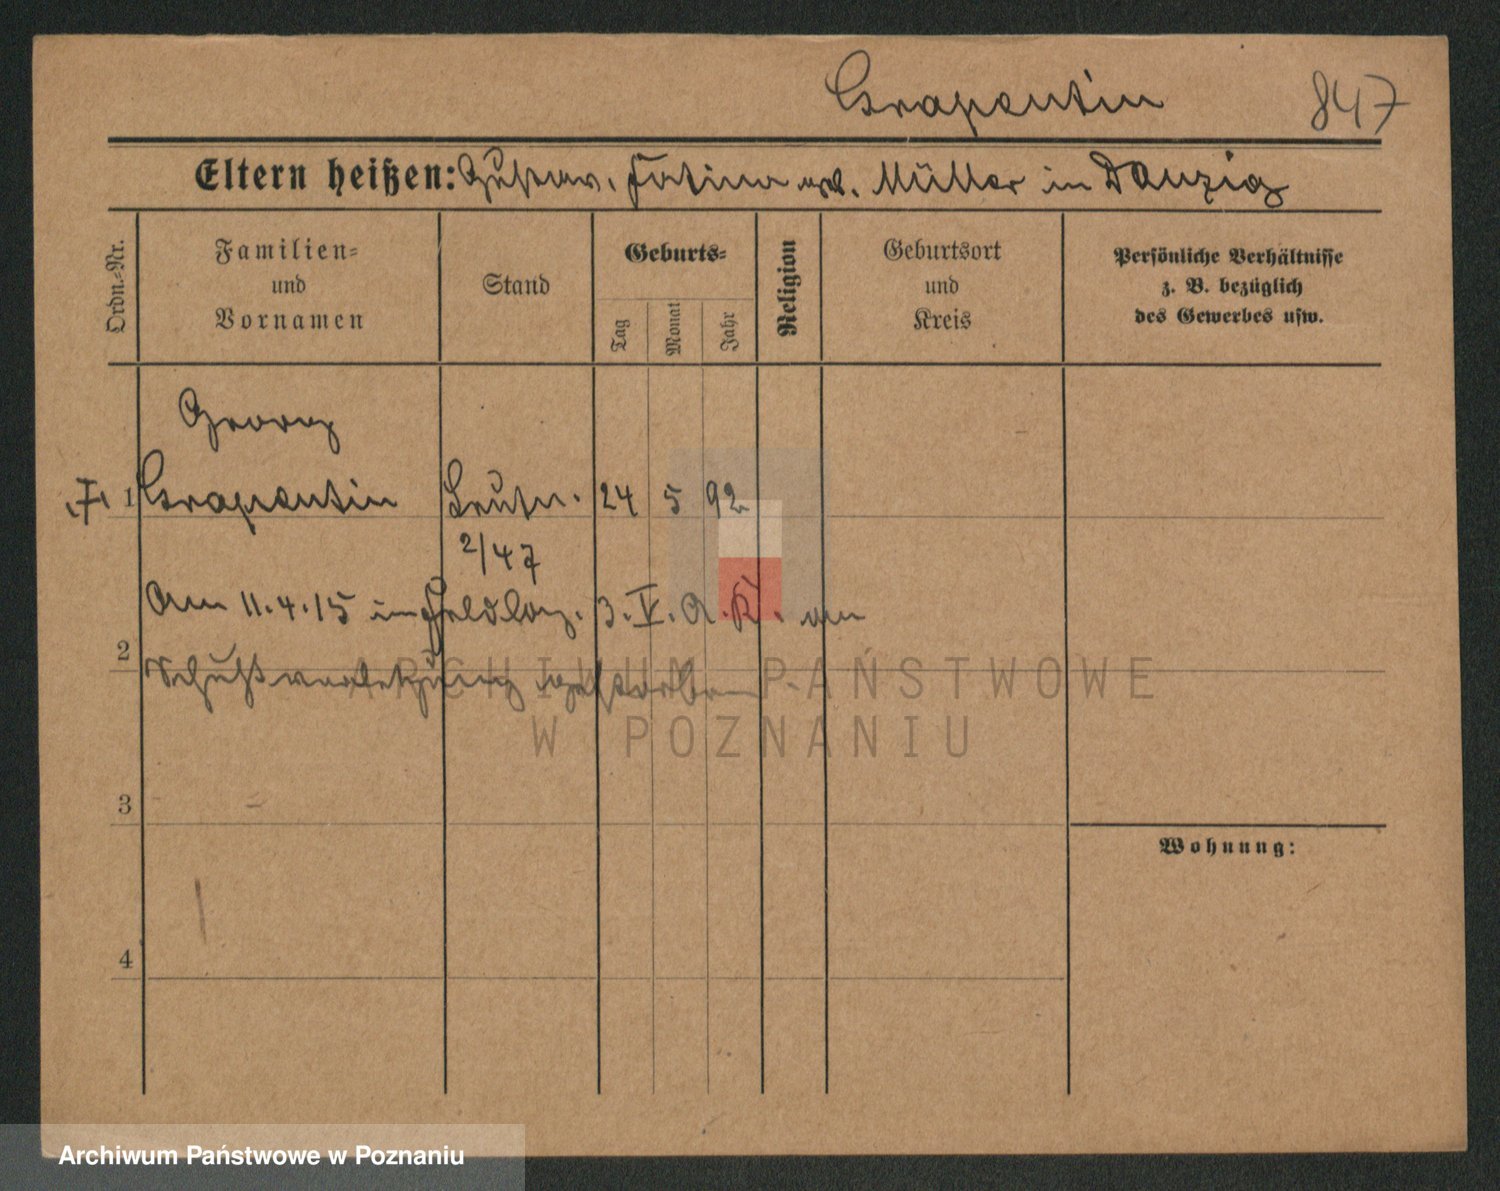 Grapentin 847
Eltern heißen: Gustav, geb. Müller in Danzig
Ordn.=Nr.
Familien=
und
Vornamen
Stand
Geburts=
Tag
Monat
Jahr
Religion
Geburtsort
und
Kreis
Persönliche Verhältnisse
z. B. bezüglich
des Gewerbes usw.
Georg
1 Grapentin Leutn. 24 5 92
2/47
Am 11.4.15 im Feldlaz. 3. V. A.K. an
2
Schußverletzung gestorben
3
4
Wohnung:
ARCHIWUM PAŃSTWOWE
W POZNANIU
Archiwum Państwowe w Poznaniu